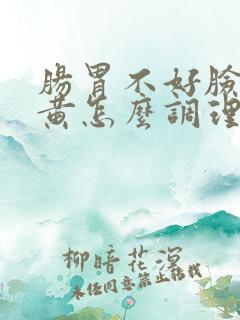 腸胃不好臉
黃怎麼調理
柳暗花溟
未任同意禁止轉載